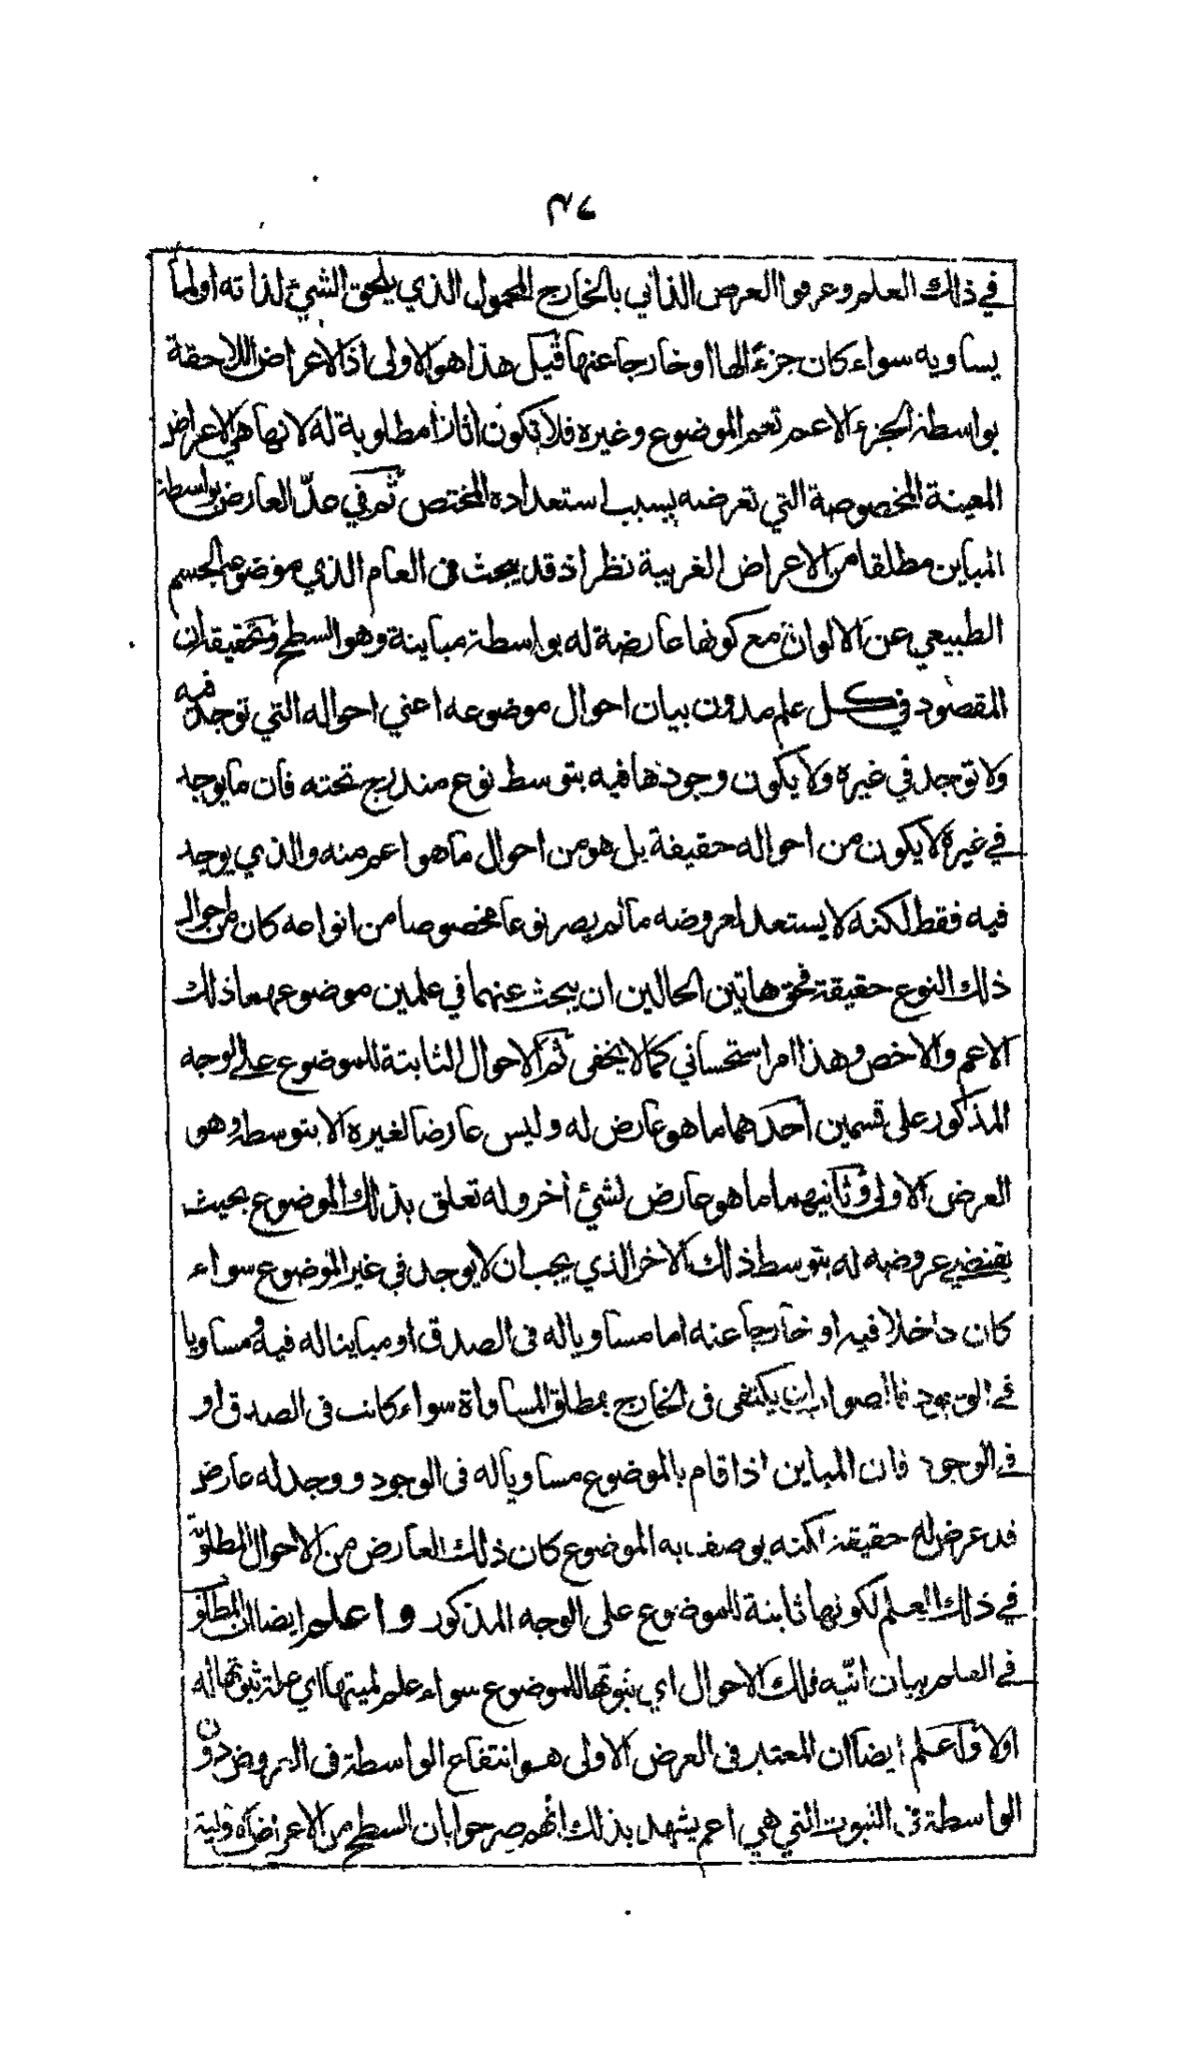 ٣٧
في ذلك العلم وعرفوا العرض الذاتي بالخارج المحمول الذي يلحق الشيئ لذاته او لما
يساويه سواء كان جزءً الها او خارجا عنها قيل هذا هو الاولى اذ الاعراض اللاحقة
بواسطة الجزء الاعم تعم الموضوع وغيره فلا تكون اثارا مطلوبة له لانها هي الاعراض
المعينة المخصوصة التي تعرضه بسبب استعداده المختص ثم في عدّ العارض بواسطة
المباين مطلقا من الاعراض الغريبة نظر اذ قد يبحث فى العام الذي موضوعه الجسم
الطبيعي عن الالوان مع كونها عارضة له بواسطة مباينة وهو السطح وتحقيقه ان
المقصود في كل علم مدون بيان احوال موضوعه اعني احواله التي توجد فيه
ولا توجد في غيره ولا يكون وجودها فيه بتوسط نوع مندرج تحته فان ما يوجد
في غيره لا يكون من احواله حقيقة بل هو من احوال ما هو اعم منه والذي يوجد
فيه فقط لكنه لا يستعد لعروضه ما لم يصر نوعا مخصوصا من انواعه كان من احوال
ذلك النوع حقيقة فحق هاتين الحالين ان يبحث عنهما في علمين موضوعهما ذلك
الاعم والاخص وهذا امر استحساني كما لا يخفى ثم الاحوال الثابتة للموضوع على الوجه
المذكور على قسمين احدهما ما هو عارض له وليس عارضا لغيره الا بتوسطه وهو
العرض الاولى وثانيهما ما هو عارض لشيئ أخر وله تعلق بذلك الموضوع بحيث
يقتضي عروضه له بتوسط ذلك الاخر الذي يجب ان لا يوجد في غير الموضوع سواء
كان داخلا فيه او خارجا عنه اما مساويا له فى الصدق او مباينا له فيه ومساويا
في الوجود فالصواب ان يكتفى فى الخارج بمطلق المساواة سواء كانت فى الصدق او
في الوجود فان المباين اذا قام بالموضوع مساويا له فى الوجود ووجد له عارض
قد عرض له حقيقة لكنه يوصف به الموضوع كان ذلك العارض من الاحوال المطلوبة
في ذلك العلم لكونها ثابتة للموضوع على الوجه المذكور واعلم ايضا ان المطلوب
في العلم بيان انّيه تلك الاحوال اي ثبوتها للموضوع سواء علم لميتها اي علة ثبوتها له
اولا واعلم ايضا ان المعتبر فى العرض الاولى هو انتفاء الواسطة فى العروض دون
الواسطة فى الثبوت التي هي اعم يشهد بذلك انهم صرحوا بان السطح من الاعراض الاولية